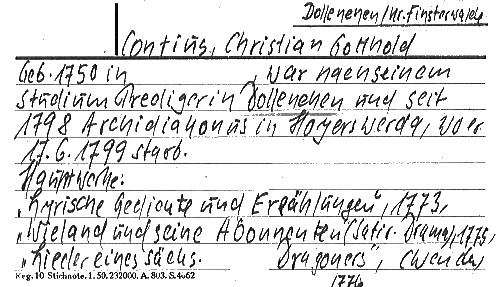 Dollenchen/Kr. Finsterwalde
Contius, Christian Gotthold
Geb. 1750 in , war nach seinem
Studium Prediger in Dollenchen und seit
1798 Archidiakonus in Hoyerswerda, wo er
17.6.1799 starb.
Hauptwerke:
„Lyrische Gedichte und Erzählungen", 1773,
„Wieland und seine Abonnenten (Satir. Drama), 1775,
„Lieder eines sächs. Dragoners", (
Reg. 10 Stichnote. 1. 50. 232000. A. 803. S. 4662
1774